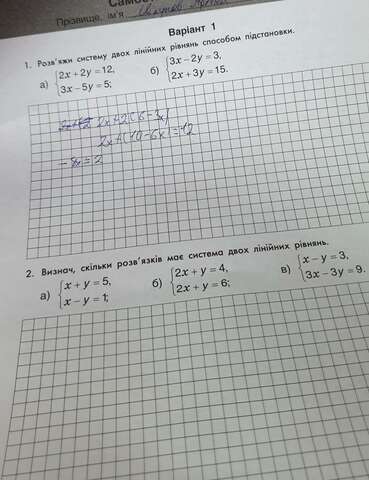 Прізвище, ім'я
Варіант 1
1. Розв'яжи систему двох лінійних рівнянь способом підстановки.
а) {2x + 2y = 12, 3x − 5y = 5; б) {3x − 2y = 3, 2x + 3y = 15.
2x+2(6-3x)
2x+(10-6x)=12
-8x=2
2. Визнач, скільки розв'язків має система двох лінійних рівнянь.
а) {x + y = 5, x − y = 1; б) {2x + y = 4, 2x + y = 6; в) {x − y = 3, 3x − 3y = 9.